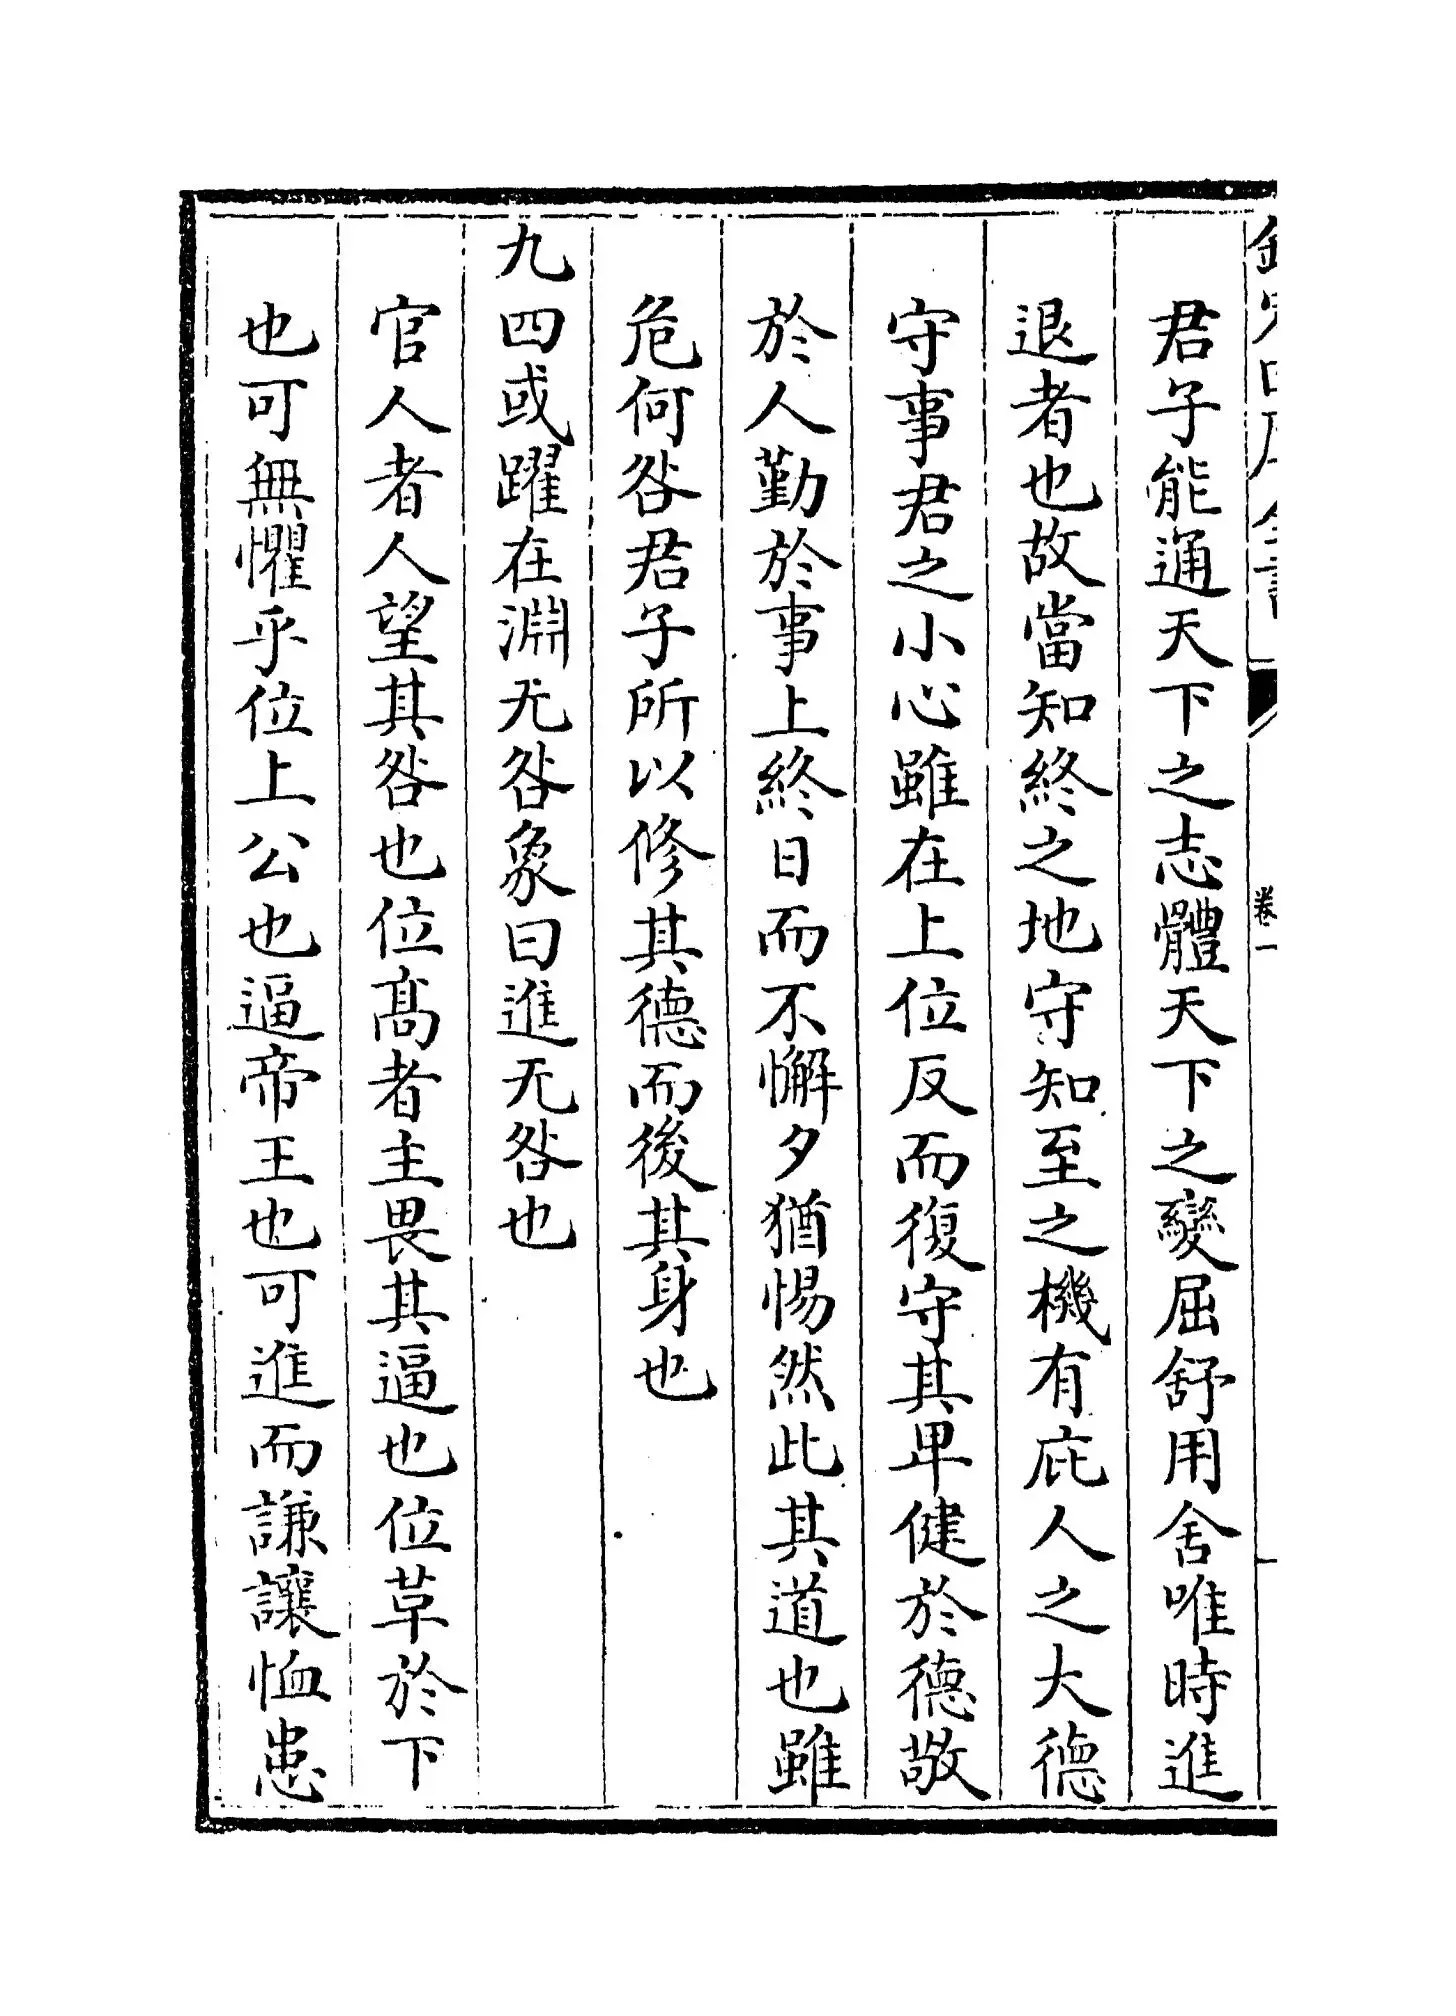 君子能通天下之志體天下之變屈舒用舍唯時進
退者也故當知終之地守知至之機有庇人之大德
守事君之小心雖在上位反而復守其卑健於德敬
於人勤於事上終日而不懈夕猶惕然此其道也雖
危何咎君子所以修其德而後其身也
九四或躍在淵无咎象曰進无咎也
官人者人望其咎也位髙者主畏其逼也位草於下
也可無懼乎位上公也逼帝王也可進而謙讓恤患
卷一